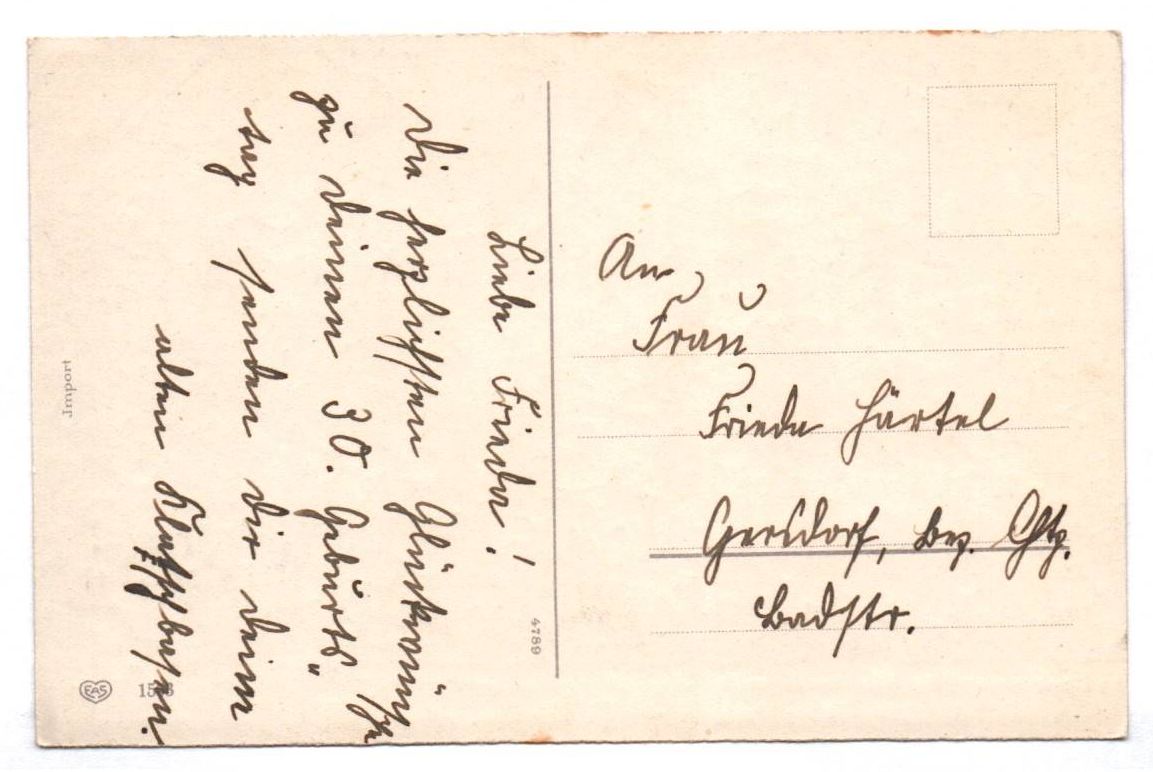 Liebe Frieda!
Die herzlichsten Glückwünsche
zu deinen 30. Geburts"
tag senden dir deine
alten Klatschbasen.
An
Frau
Frieda Härtel
Gersdorf, Bez. Chtz.
Badstr.
4789
Import
EAS